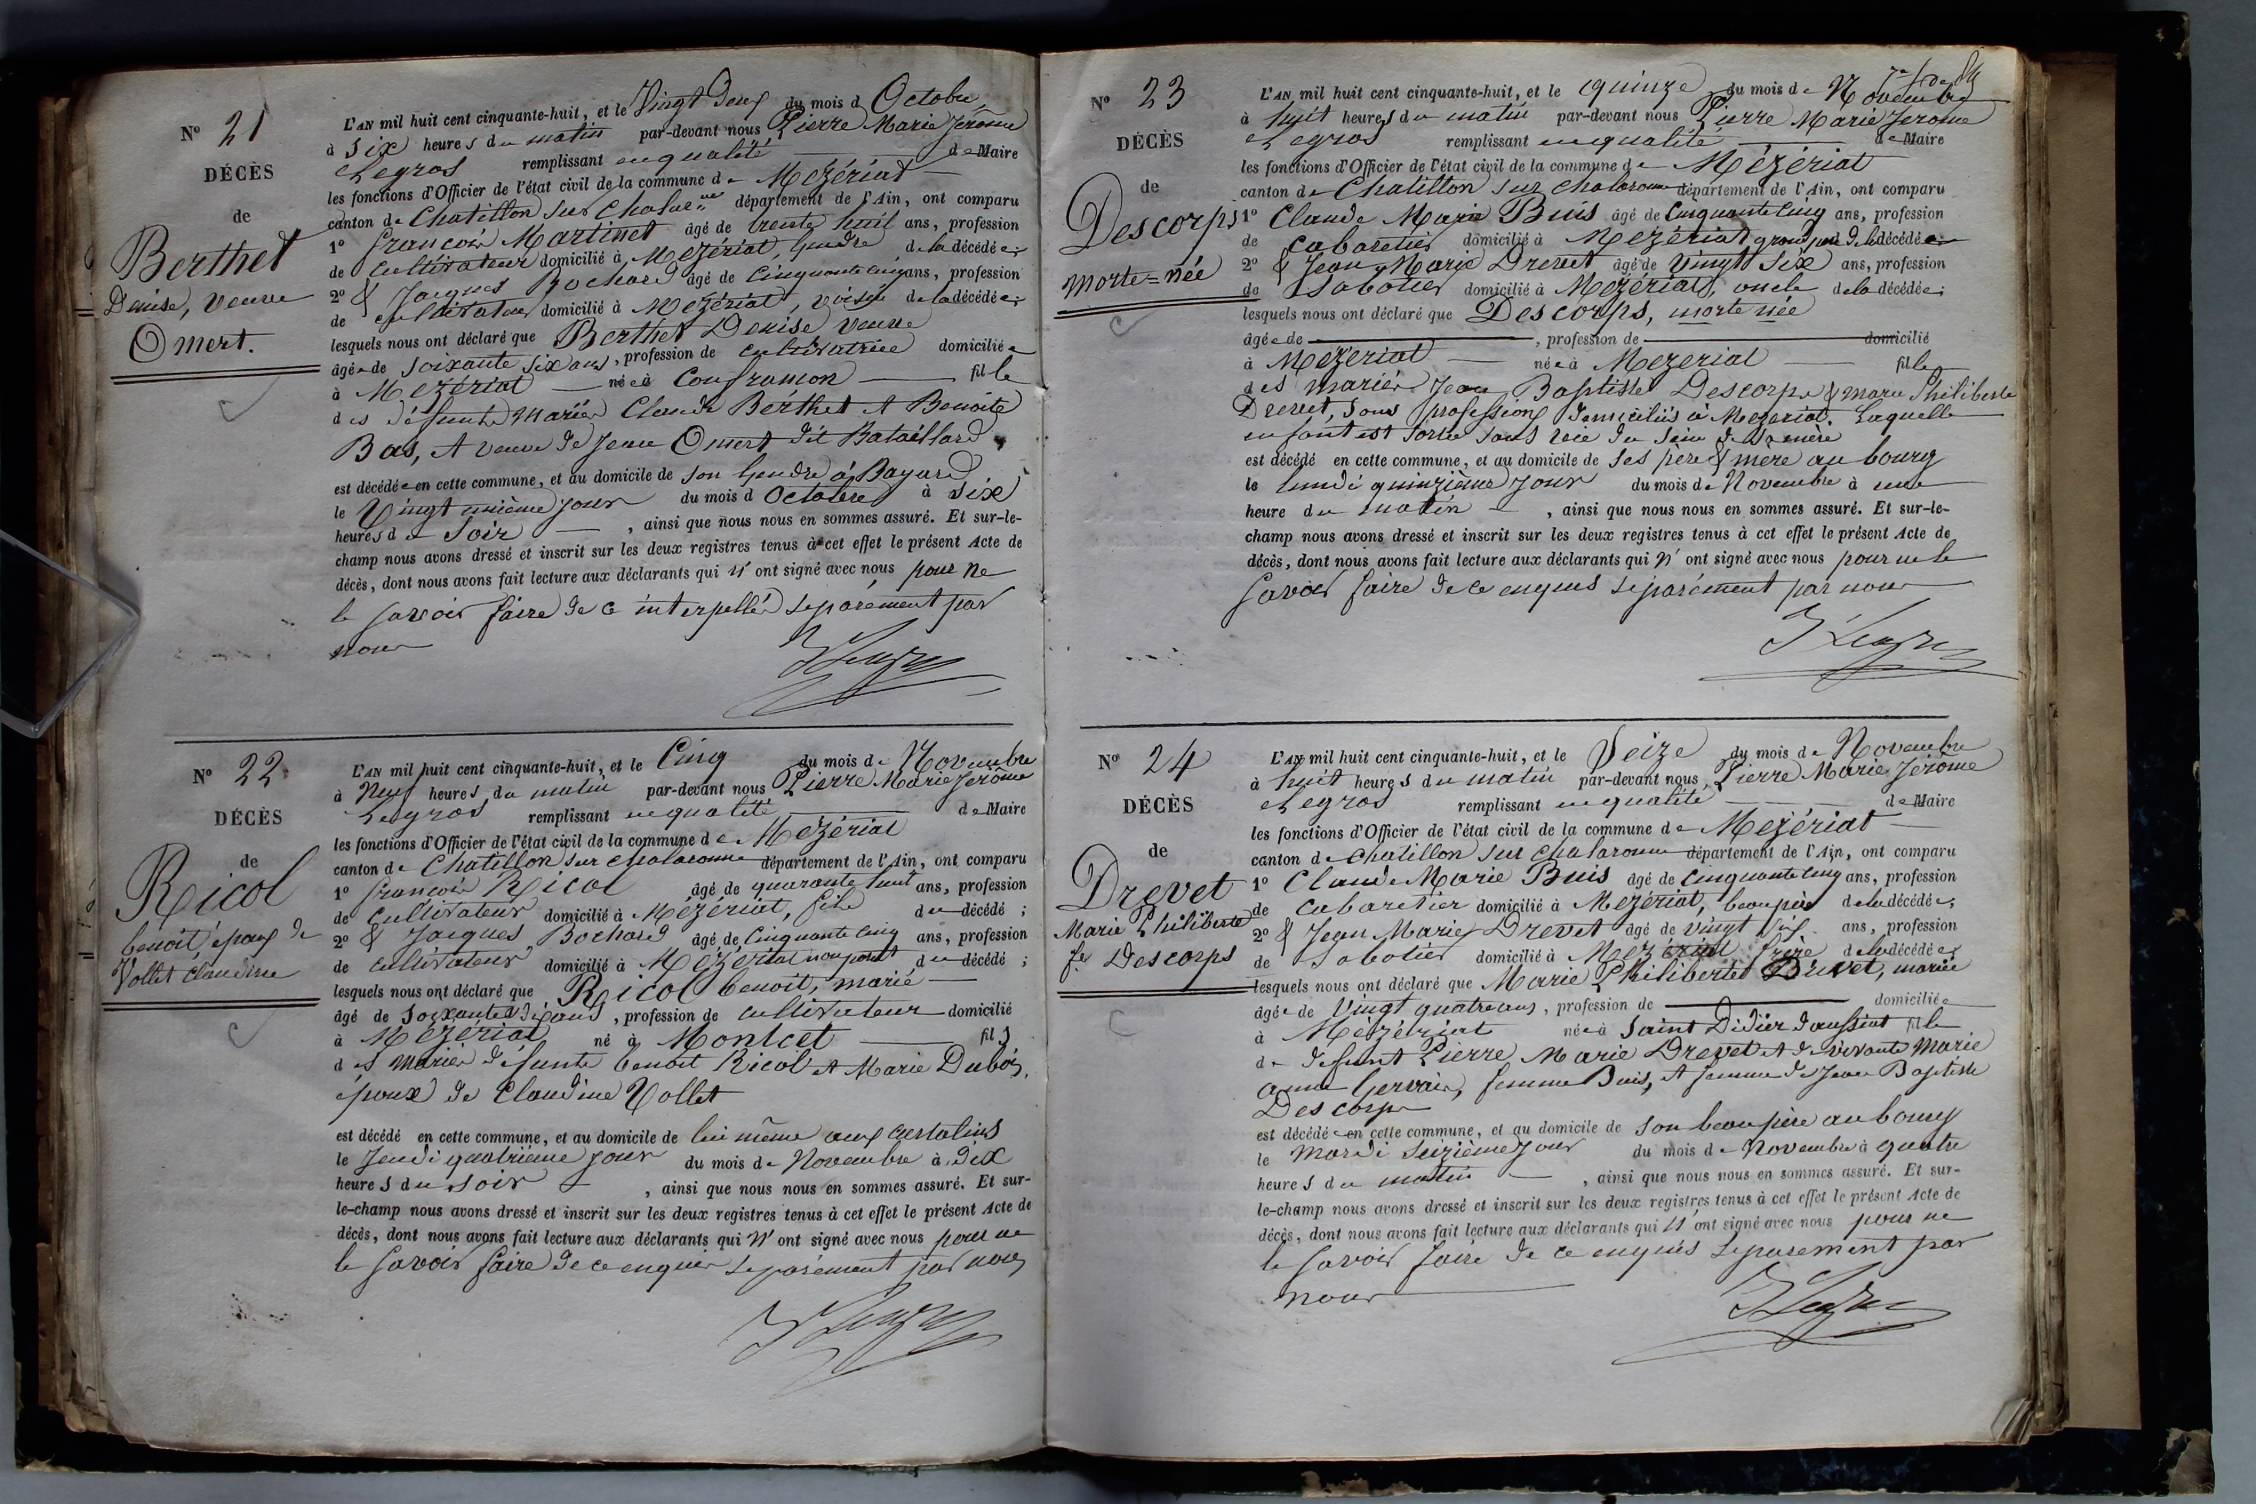 N° 21
DÉCÈS
de
Berthet
Denise, veuve
Omert.
L'AN mil huit cent cinquante-huit, et le Vingt Deux du mois d Octobre
à Six heures du matin par-devant nous Pierre Marie Jérôme
Legros remplissant en qualité de Maire
les fonctions d'Officier de l'état civil de la commune de Mézériat
canton de Chatillon sur Chalar.nne département de l'Ain, ont comparu
1° François Martinet âgé de trente huit ans, profession
de cultivateur domicilié à Mézériat, Gendre de la décédée;
2° & Jacques Bochard âgé de Cinquante cinq ans, profession
de cultivateur domicilié à Mézériat, voisin de la décédée;
lesquels nous ont déclaré que Berthet Denise veuve
âgée de soixante six ans, profession de cultivatrice domiciliée
à Mézériat née à Confrançon fille
des défunts Mariés Claude Berthet et Benoite
Bas, et veuve de Jean Omert dit Bataillard
est décédée en cette commune, et au domicile de son Gendre à Bayard
le Vingt unième jour du mois d Octobre à Six
heures du Soir , ainsi que nous nous en sommes assuré. Et sur-le-
champ nous avons dressé et inscrit sur les deux registres tenus à cet effet le présent Acte de
décès, dont nous avons fait lecture aux déclarants qui n'ont signé avec nous pour ne
le savoir faire de ce interpellés séparément par
nous
N° 22
DÉCÈS
de
Ricol
benoit époux de
Vollet claudine
L'AN mil huit cent cinquante-huit, et le Cinq du mois de Novembre
à Neuf heures du matin par-devant nous Pierre Marie Jérôme
Legros remplissant en qualité de Maire
les fonctions d'Officier de l'état civil de la commune de Mézériat
canton de Chatillon sur chalaronne département de l'Ain, ont comparu
1° françois Ricol âgé de quarante huit ans, profession
de cultivateur domicilié à Mézériat, fils du décédé;
2° & Jacques Bochard âgé de Cinquante cinq ans, profession
de cultivateur domicilié à Mézériat non parent du décédé;
lesquels nous ont déclaré que Ricol benoit, marié
âgé de soixante dix ans, profession de cultivateur domicilié
à Mézériat né à Montcet fils
des Mariés défunts benoit Ricol et Marie Dubois,
époux de Claudine Vollet
est décédé en cette commune, et au domicile de lui même aux
le Jeudi quatrième jour du mois de Novembre à Dix
heures du soir , ainsi que nous nous en sommes assuré. Et sur-
le-champ nous avons dressé et inscrit sur les deux registres tenus à cet effet le présent Acte de
décès, dont nous avons fait lecture aux déclarants qui n'ont signé avec nous pour ne
le savoir faire de ce enquis séparément par nous
N° 23
DÉCÈS
de
Descorps
morte=née
L'AN mil huit cent cinquante-huit, et le quinze du mois de Novembre
à huit heures du matin par-devant nous Pierre Marie Jérôme
Legros remplissant en qualité de Maire
les fonctions d'Officier de l'état civil de la commune de Mézériat
canton de Chatillon sur Chalaronne département de l'Ain, ont comparu
1° Claude Marie Buis âgé de Cinquante Cinq ans, profession
de cabaretier domicilié à Mézériat grand père de la décédée
2° & Jean Marie Drevet âgé de Vingt Six ans, profession
de Sabotier domicilié à Mézériat, oncle de la décédée;
lesquels nous ont déclaré que Descorps, morte née
âgée de , profession de domicilié
à Mézériat née à Mézériat fille
des mariés Jean Baptiste Descorps & marie Philiberte
Drevet, sans profession domiciliés à Mézériat. Laquelle
enfant est sortie sans vie du sein de sa mère
est décédé en cette commune, et au domicile de ses père & mère au bourg
le lundi quinzième jour du mois de Novembre à une
heure du matin , ainsi que nous nous en sommes assuré. Et sur-le-
champ nous avons dressé et inscrit sur les deux registres tenus à cet effet le présent Acte de
décès, dont nous avons fait lecture aux déclarants qui n'ont signé avec nous pour ne le
savoir faire de ce enquis séparément par nous
N° 24
DÉCÈS
de
Drevet
Marie Philiberte
fe Descorps
L'AN mil huit cent cinquante-huit, et le Seize du mois de Novembre
à huit heures du matin par-devant nous Pierre Marie Jérôme
Legros remplissant en qualité de Maire
les fonctions d'Officier de l'état civil de la commune de Mézériat
canton de Chatillon sur chalaronne département de l'Ain, ont comparu
1° Claude Marie Buis âgé de Cinquante Cinq ans, profession
de Cabaretier domicilié à Mézériat, beau père de la décédée;
2° & Jean Marie Drevet âgé de Vingt Six ans, profession
de Sabotier domicilié à Mézériat frère de la décédée
lesquels nous ont déclaré que Marie Philiberte Drevet, mariée
âgée de Vingt quatre ans, profession de domiciliée
à Mézériat née à Saint Didier d'aussiat fille
de défunt Pierre Marie Drevet et de vivante Marie
anne Gervais, femme Buis, et femme de Jean Baptiste
Descorps
est décédée en cette commune, et au domicile de son beau père au bourg
le Mardi Seizième jour du mois de Novembre à quatre
heures du matin , ainsi que nous nous en sommes assuré. Et sur-
le-champ nous avons dressé et inscrit sur les deux registres tenus à cet effet le présent Acte de
décès, dont nous avons fait lecture aux déclarants qui n'ont signé avec nous pour ne
le savoir faire de ce enquis séparément par
nous